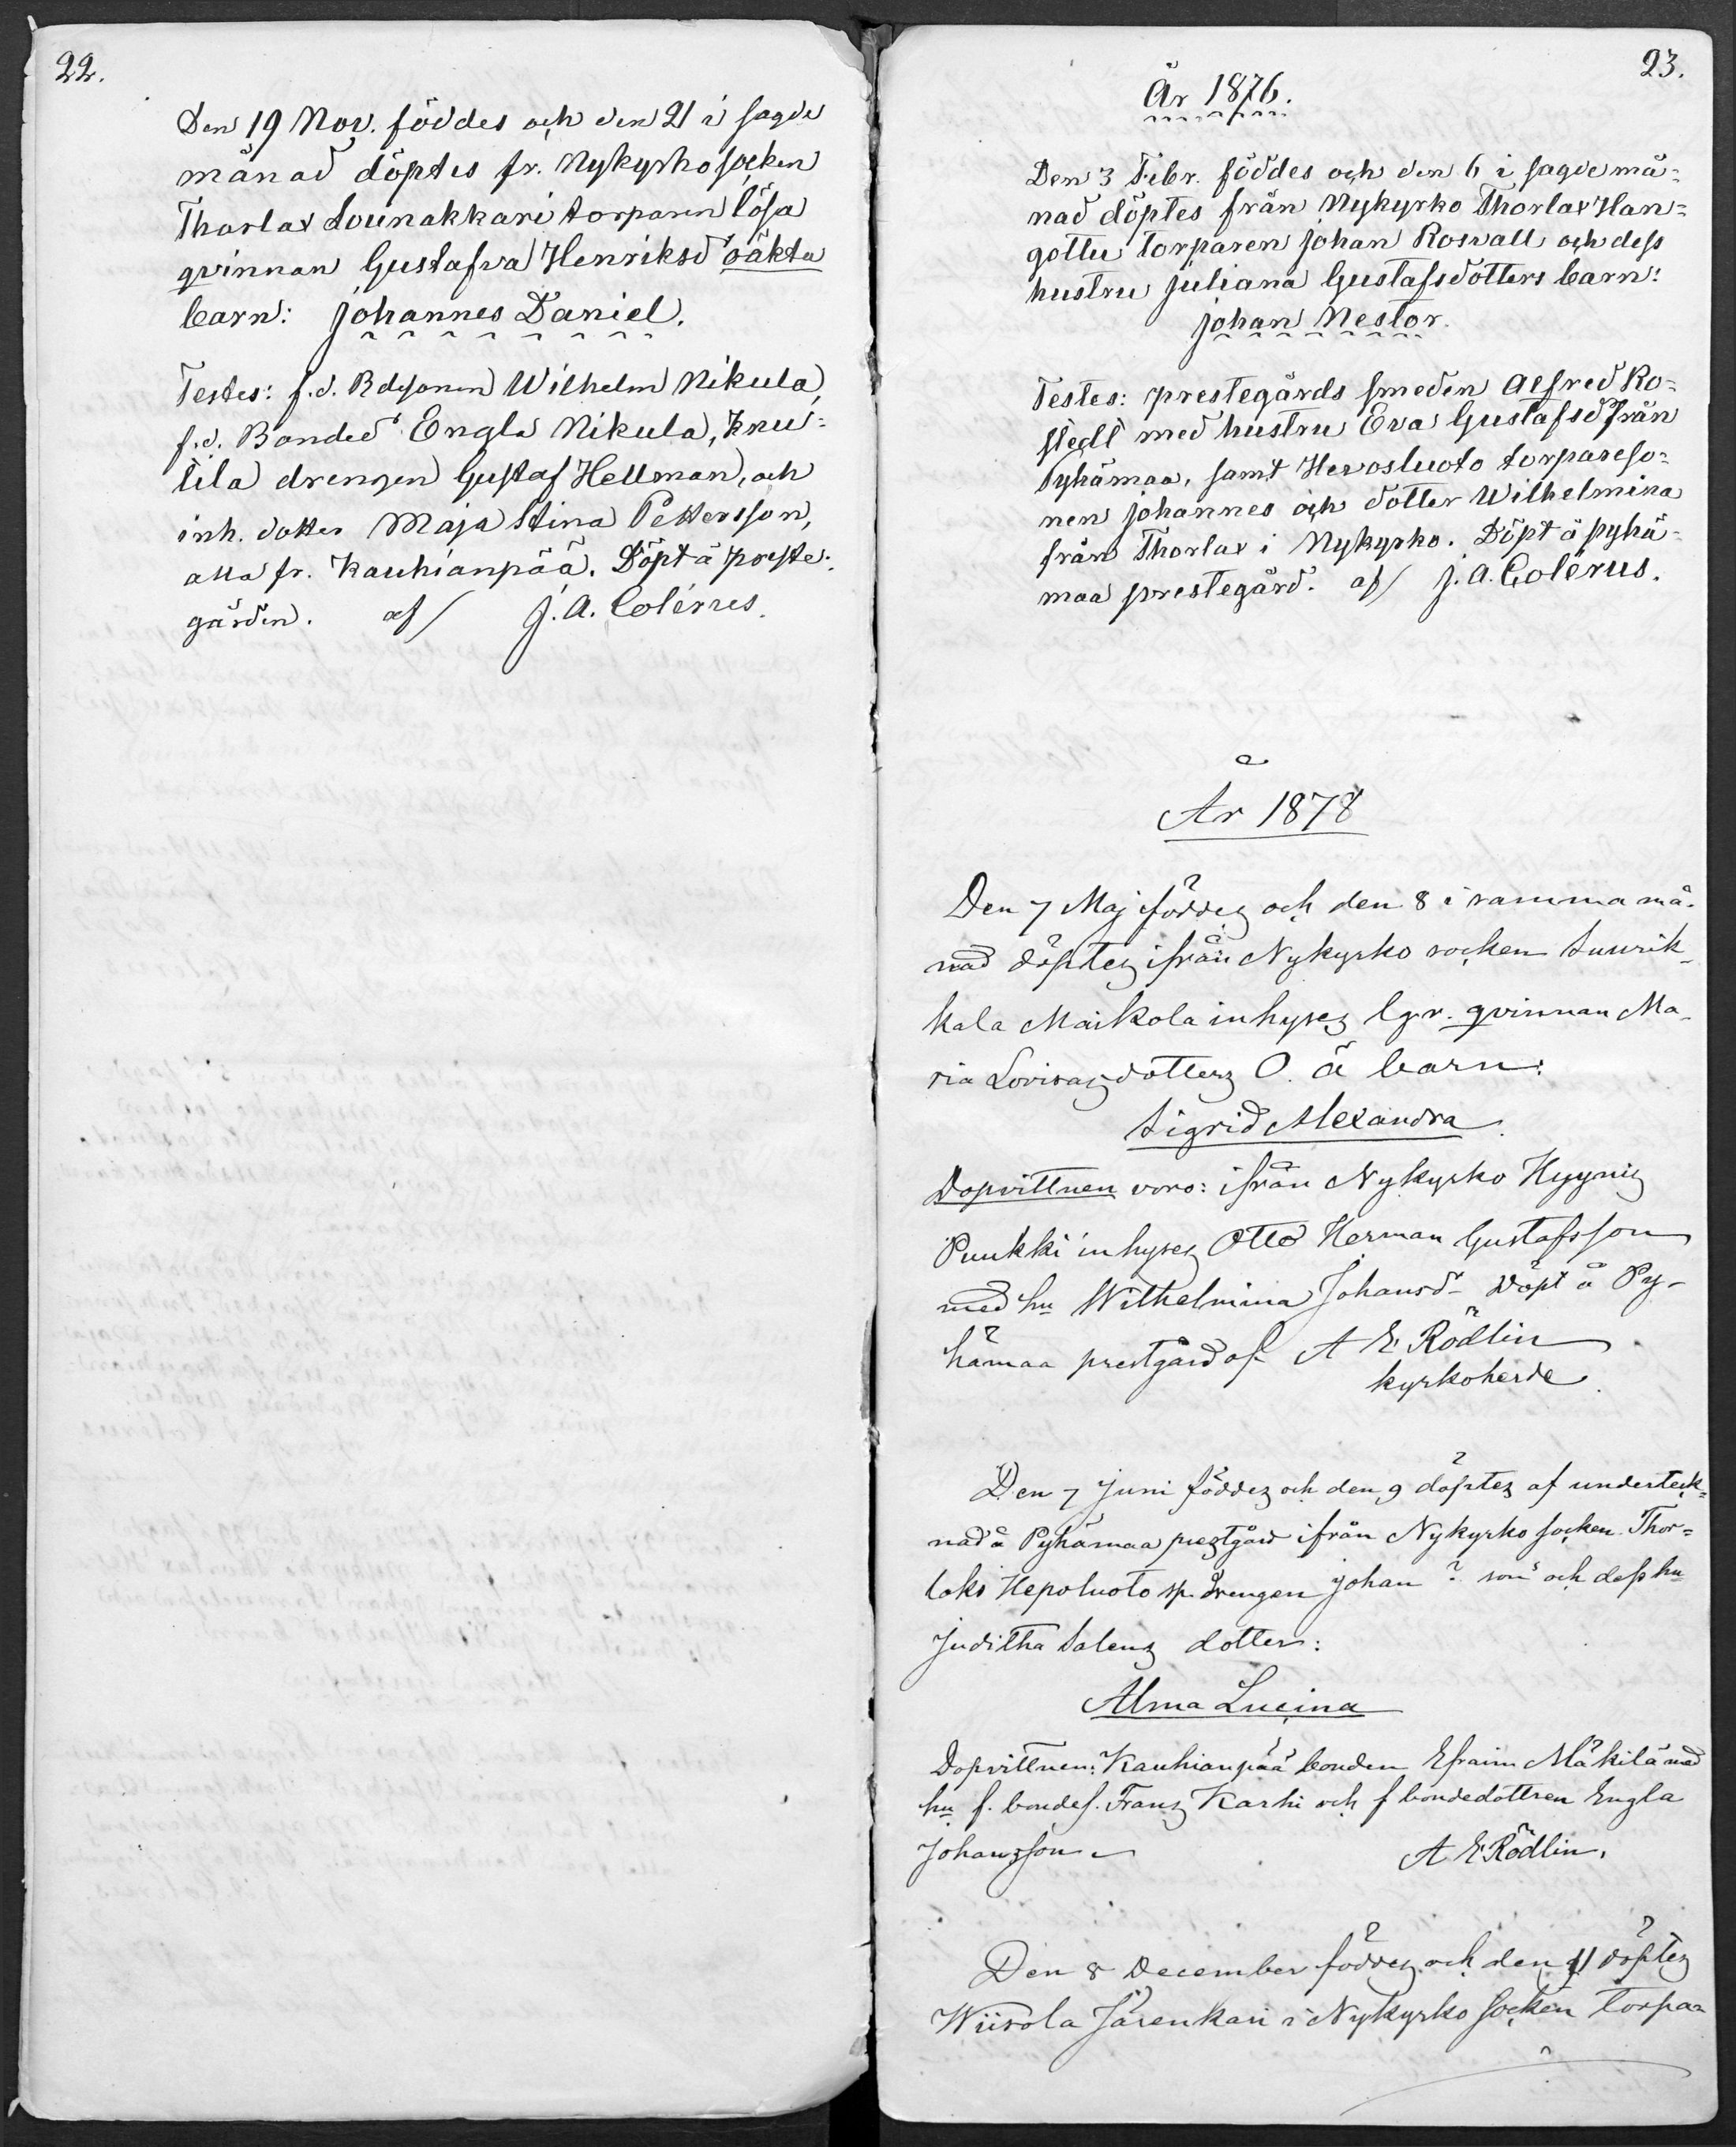 22.
Den 19 Nov. föddes och den 21 i sagde
månad döptes fr. Nykyrko socken
Thorlax Lounakkari torparen lösa
qvinnan Gustafva Henriksd oäkta
barn: Johannes Daniel.
Testes: f.d. Wilhelm Nikula,
f.d. Bonded Engla Nikula, Knu=
tila drengen Gustaf Hellman, och
inh. dotter Maja Stina Pettersson,
alla fr. Kauhianpää. Döpt å preste-
gården. af J. A. Colérus.
23.
År 1876.
Den 3 Febr. föddes och den 6 i sagde må=
nad döptes från Nykyrko Thorlax Han=
gottu torparen Johan Rosvall och dess
hustru Juliana Gustafsdotters barn:
Johan Nestor.
Testes: prestegårds smeden Alfred Ro=
stedt med hustru Eva Gustafsd från
Pyhämaa, samt Hevosluoto torpareso=
nen Johannes och dotter Wilhelmina
från Thorlax i Nykyrko. Döpt å Pyhä=
maa prestegård. af J. A. Colérus.
År 1878
Den 7 Maj föddes och den 8 i samma må-
nad döptes ifrån Nykyrko socken Suurik-
kala Maikola inhyses lgr. qvinnan Ma-
ria Lovisasdotters O. ä barn:
Sigrid Alexandra.
Dopvittnen voro: ifrån Nykyrko Hyynis
Puukki inhyses Otto Herman Gustafsson
med hu Wilhelmina Johansd- Döpt å Py-
hämaa prestgård af A E Rödlin
kyrkoherde.
Den 7 Juni föddes och den 9 döptes af underteck=
nad å Pyhämaa prestgård ifrån Nykyrko socken Thor=
laks Hepoluoto sp. drengen Johan ? son och dess hu
Juditha Salens dotter:
Alma Lucina
Dopvittnen: Kauhianpää bonden Efraim Mäkilä med
hu f. bondes. Frans Karhi och f bondedottren Engla
Johansson A E Rödlin.
Den 8 December föddes och den 11 döptes
Wiisola Särenkari i Nykyrko socken torpa=